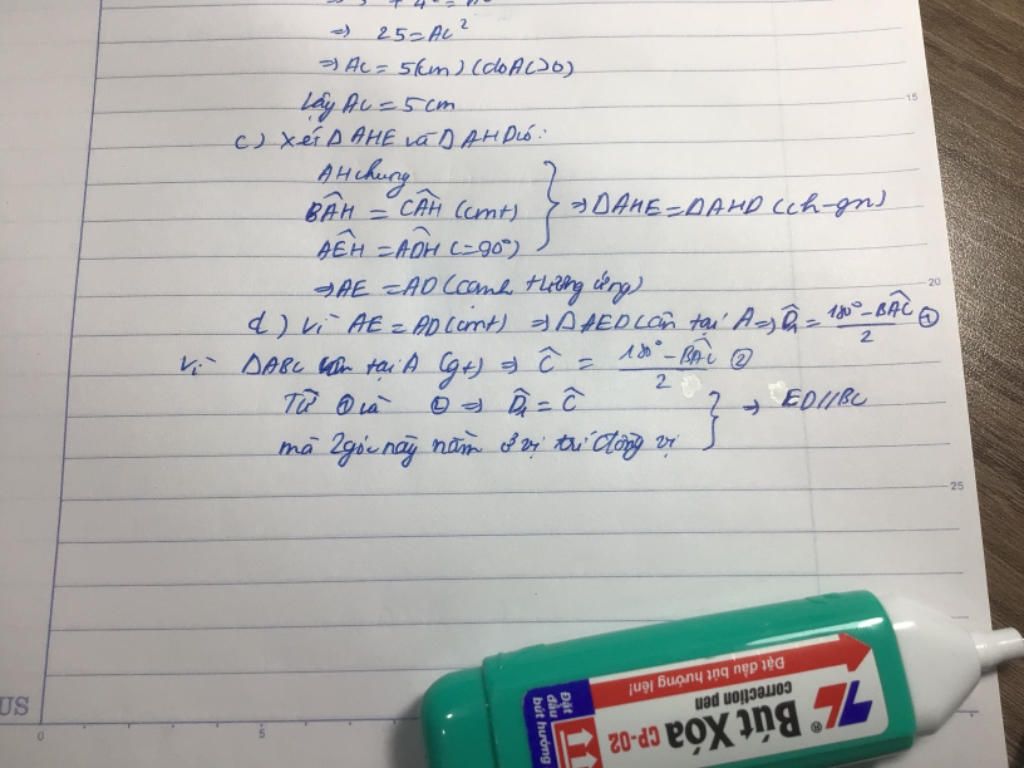 ⇒ 25 = AC²
⇒ AC = 5(cm) (do AC>0)
Vậy AC = 5cm
c) Xét ΔAHE và ΔAHD có:
AH chung
BÂH = CÂH (cmt)
AÊH = ADH (=90°)
} ⇒ ΔAHE = ΔAHD (ch-gn)
⇒ AE = AD (cạnh tương ứng)
d) Vì AE = AD (cmt) ⇒ ΔAED cân tại A ⇒ D̂₁ = (180° - BÂC)/2 ①
Vì ΔABC cân tại A (gt) ⇒ Ĉ = (180° - BÂC)/2 ②
Từ ① và ② ⇒ D̂₁ = Ĉ
mà 2 góc này nằm ở vị trí đồng vị
} ⇒ ED//BC
15
20
25
US
0
5
Đặt đầu bút hướng lên!
correction pen
TL ® Bút Xóa CP-02
Đặt
đầu
bút hướng